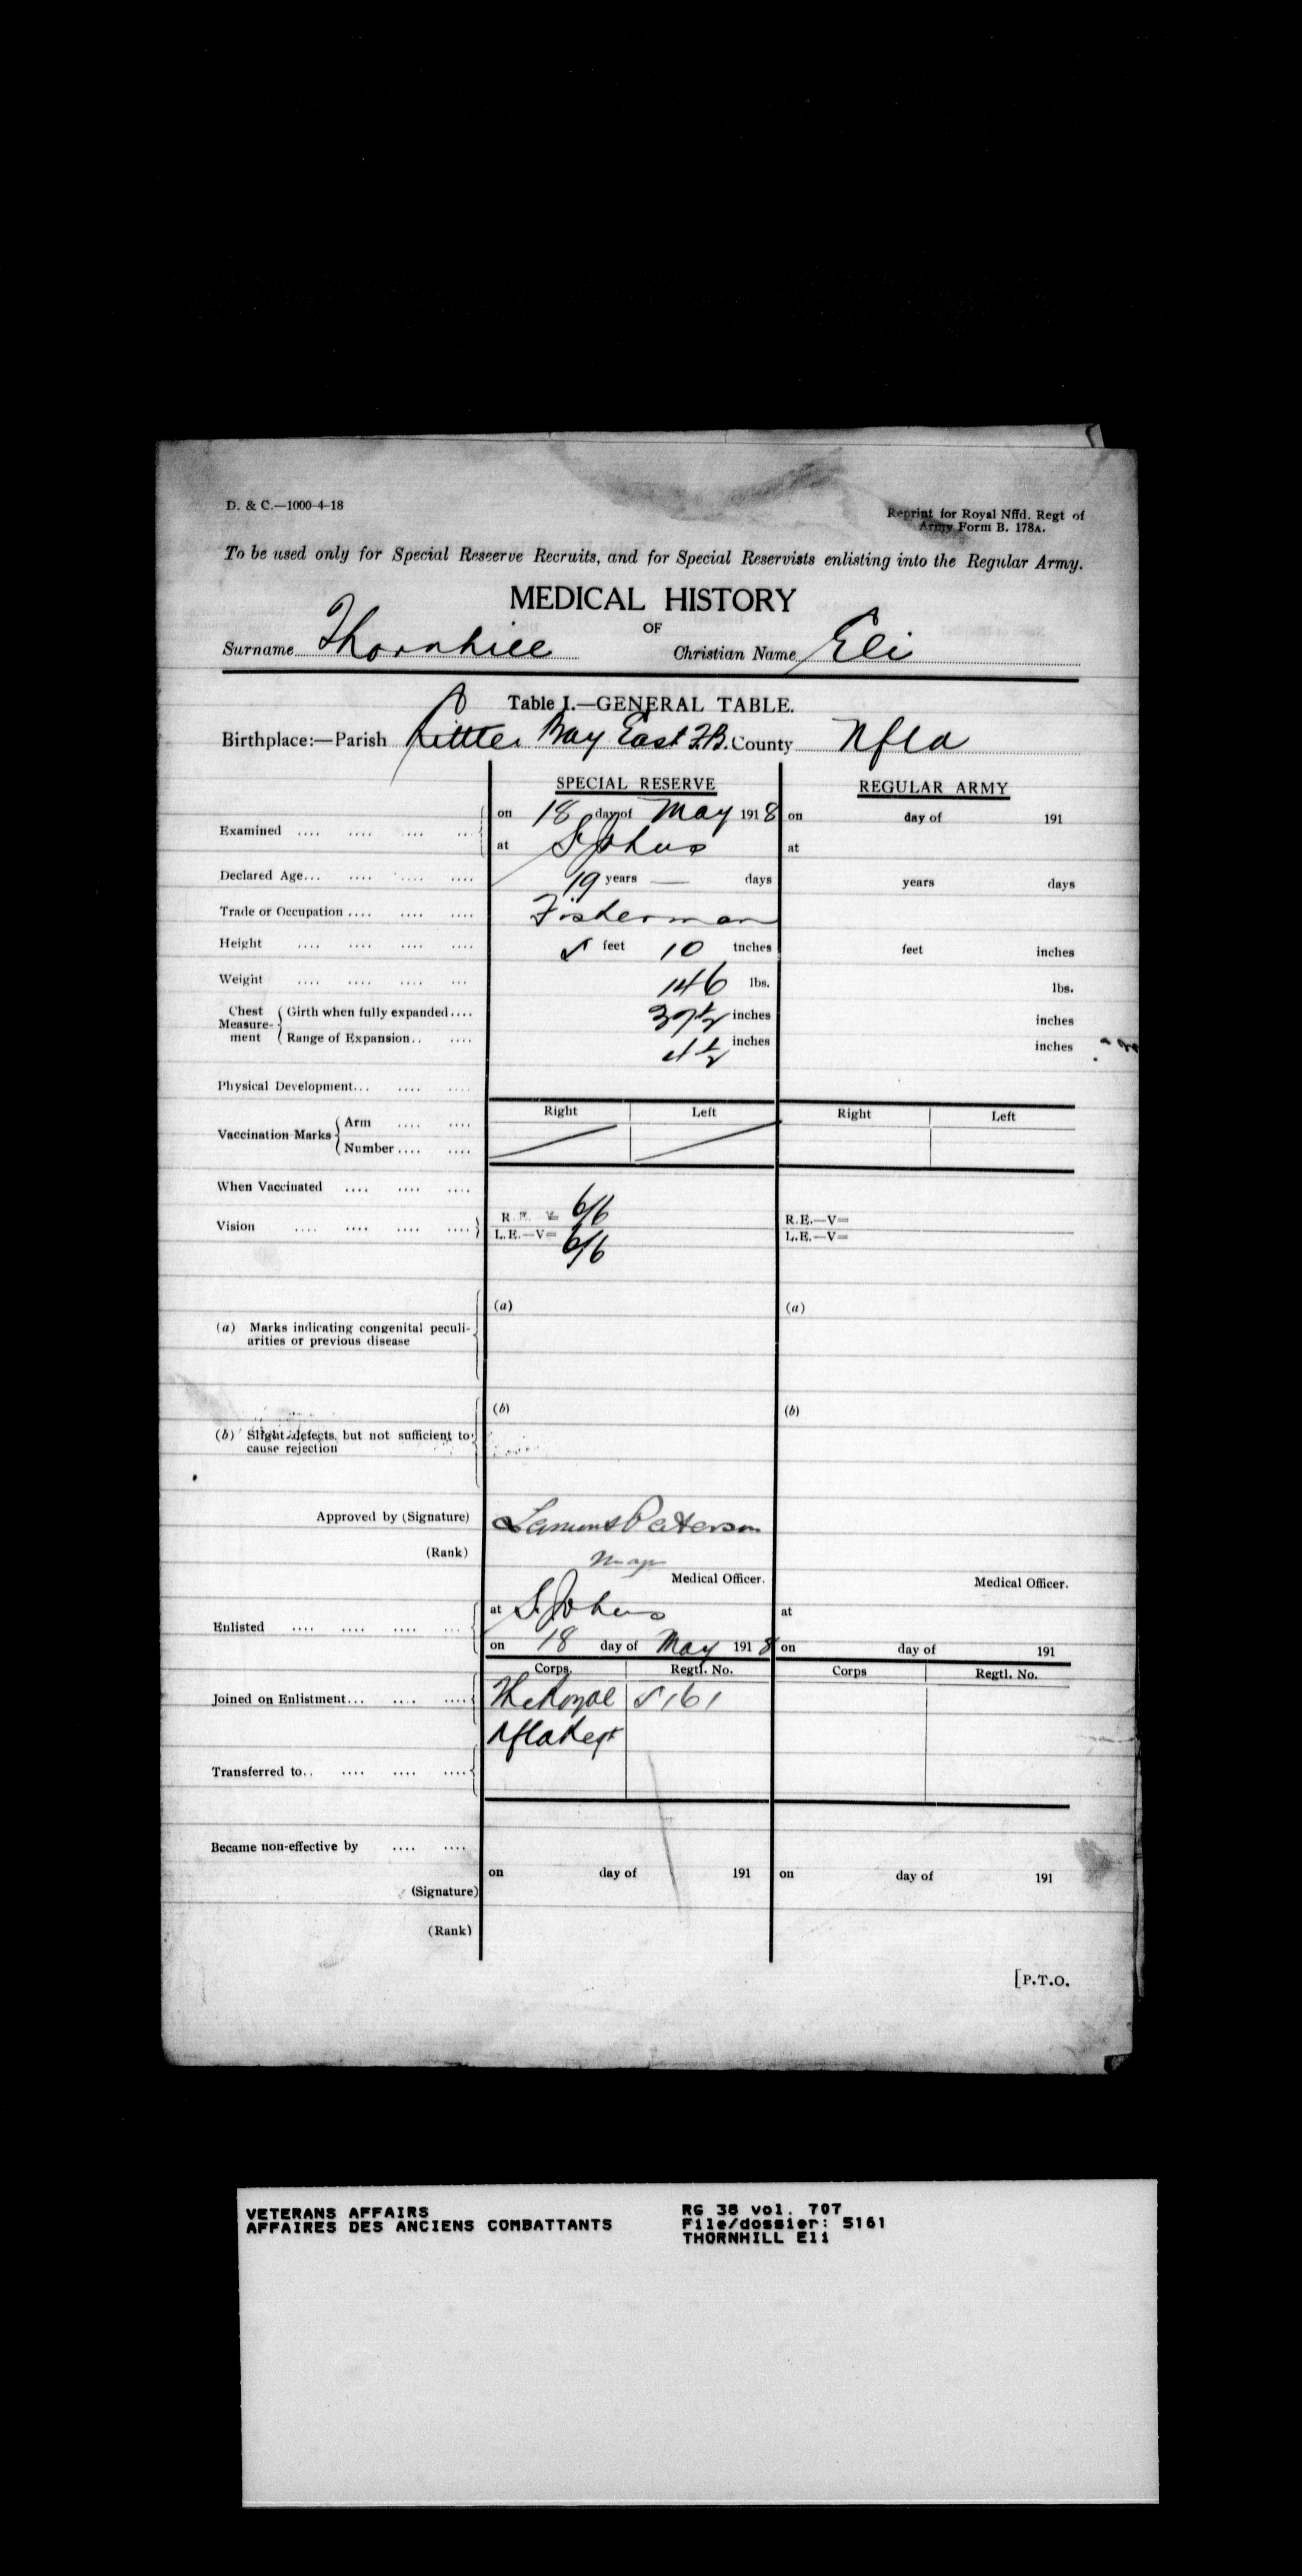 D. & C.—1000-4-18
Reprint for Royal Nffd. Regt of
Army Form B. 178A.
To be used only for Special Reserve Recruits, and for Special Reservists enlisting into the Regular Army.
MEDICAL HISTORY
OF
Surname Thornhill Christian Name Eli
Table I.—GENERAL TABLE.
Birthplace:—Parish Little Bay East F.B. County Nfld
SPECIAL RESERVE REGULAR ARMY
Examined .... .... .... .... on 18 day of May 1918 on day of 191
at St Johns at
Declared Age... .... .... .... 19 years — days years days
Trade or Occupation .... .... .... Fisherman
Height .... .... .... .... 5 feet 10 inches feet inches
Weight .... .... .... .... 146 lbs. lbs.
Chest Measurement Girth when fully expanded.... 37½ inches inches
Range of Expansion.. .... 4½ inches inches
Physical Development... .... ....
Right Left Right Left
Vaccination Marks Arm .... ....
Number .... ....
When Vaccinated .... .... ....
Vision .... .... .... .... R.E.—V= 6/6 R.E.—V=
L.E.—V= 6/6 L.E.—V=
(a) Marks indicating congenital peculi- (a) (a)
arities or previous disease
(b) Slight defects, but not sufficient to (b) (b)
cause rejection
Approved by (Signature) Lamont Paterson
(Rank) Maj
Medical Officer. Medical Officer.
Enlisted .... .... .... .... at St Johns at
on 18 day of May 1918 on day of 191
Corps. Regtl. No. Corps Regtl. No.
Joined on Enlistment... .... .... The Royal 5161
Nfld Regt
Transferred to.. .... .... ....
Became non-effective by .... ....
on day of 191 on day of 191
(Signature)
(Rank)
[P.T.O.
VETERANS AFFAIRS RG 38 vol. 707
AFFAIRES DES ANCIENS COMBATTANTS File/dossier: 5161
THORNHILL Eli